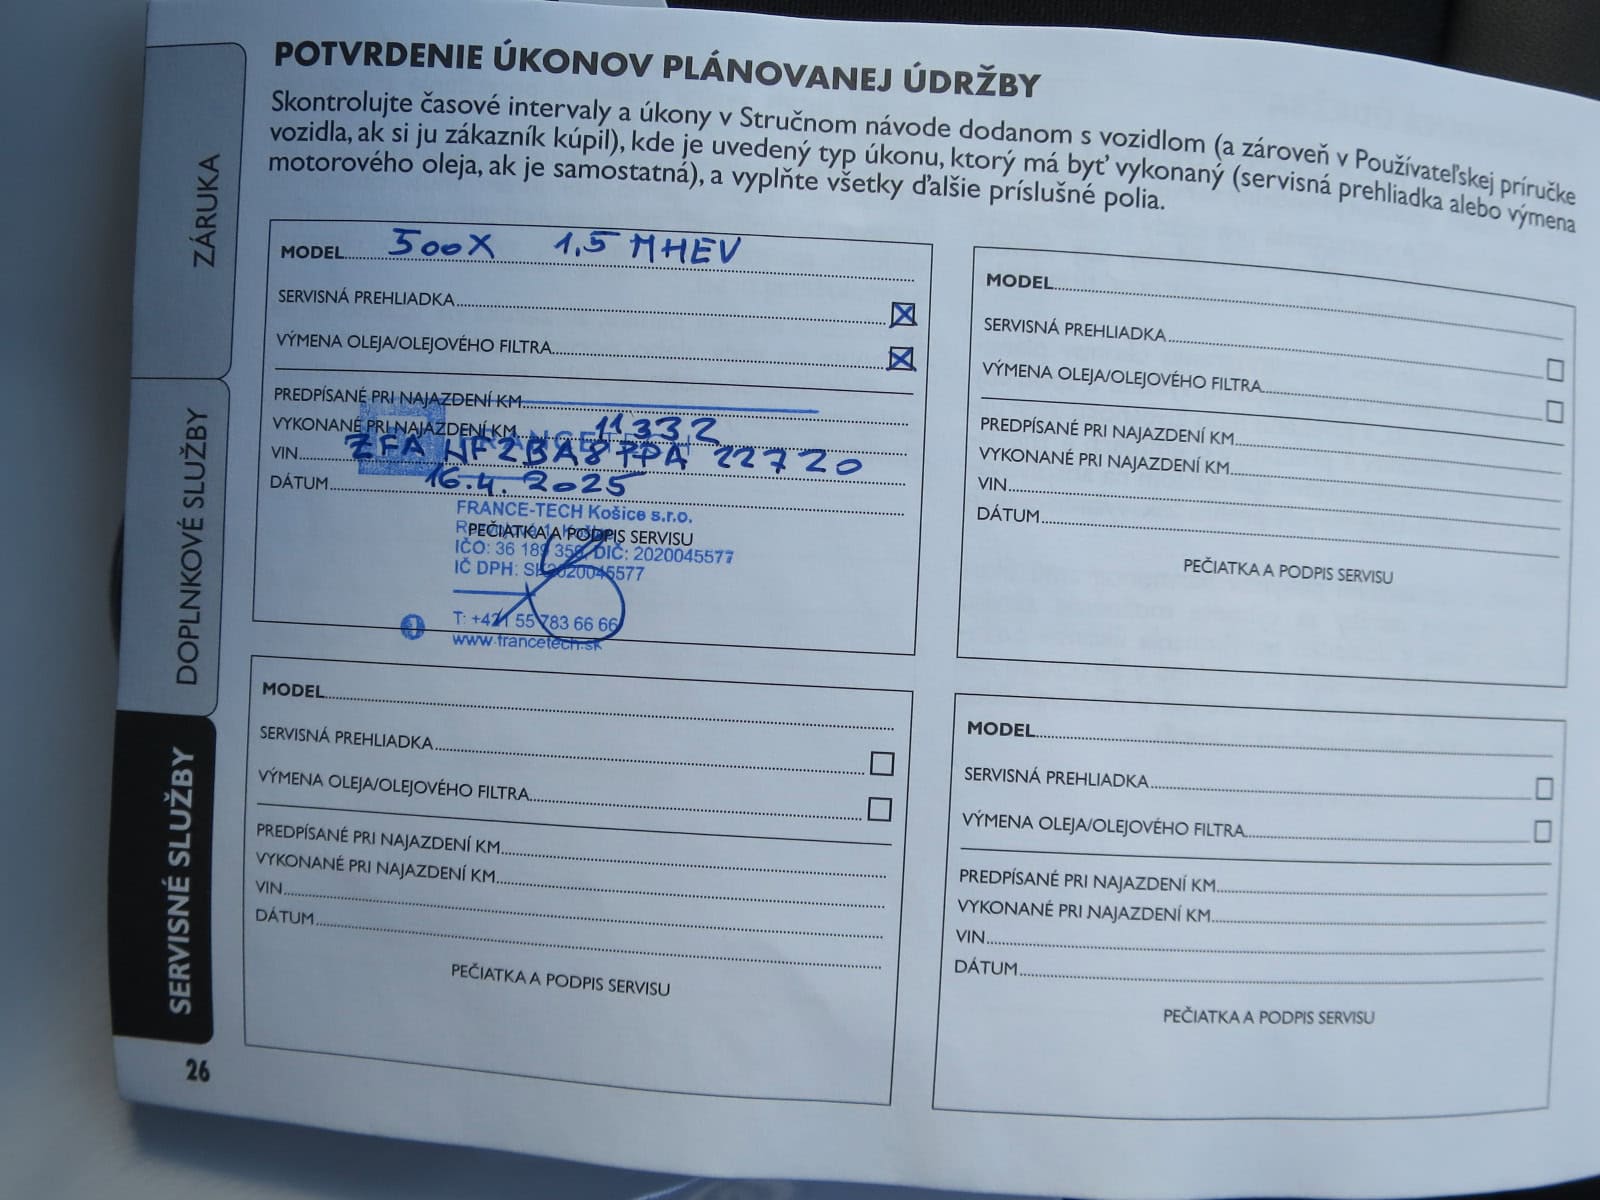 POTVRDENIE ÚKONOV PLÁNOVANEJ ÚDRŽBY
Skontrolujte časové intervaly a úkony v Stručnom návode dodanom s vozidlom (a zároveň v Používateľskej príručke
vozidla, ak si ju zákazník kúpil), kde je uvedený typ úkonu, ktorý má byť vykonaný (servisná prehliadka alebo výmena
motorového oleja, ak je samostatná), a vyplňte všetky ďalšie príslušné polia.
ZÁRUKA
DOPLNKOVÉ SLUŽBY
SERVISNÉ SLUŽBY
MODEL 500X 1,5 MHEV
SERVISNÁ PREHLIADKA
VÝMENA OLEJA/OLEJOVÉHO FILTRA
PREDPÍSANÉ PRI NAJAZDENÍ KM
VYKONANÉ PRI NAJAZDENÍ KM 11332
VIN ZFA NF2BA8PPA 22720
DÁTUM 16.4.2025
FRANCE-TECH Košice s.r.o.
PEČIATKA A PODPIS SERVISU
IČO: 36 189 359, DIČ: 2020045577
IČ DPH: SK2020045577
T: +421 55 783 66 66
www.francetech.sk
MODEL
SERVISNÁ PREHLIADKA
VÝMENA OLEJA/OLEJOVÉHO FILTRA
PREDPÍSANÉ PRI NAJAZDENÍ KM
VYKONANÉ PRI NAJAZDENÍ KM
VIN
DÁTUM
PEČIATKA A PODPIS SERVISU
MODEL
SERVISNÁ PREHLIADKA
VÝMENA OLEJA/OLEJOVÉHO FILTRA
PREDPÍSANÉ PRI NAJAZDENÍ KM
VYKONANÉ PRI NAJAZDENÍ KM
VIN
DÁTUM
PEČIATKA A PODPIS SERVISU
MODEL
SERVISNÁ PREHLIADKA
VÝMENA OLEJA/OLEJOVÉHO FILTRA
PREDPÍSANÉ PRI NAJAZDENÍ KM
VYKONANÉ PRI NAJAZDENÍ KM
VIN
DÁTUM
PEČIATKA A PODPIS SERVISU
26